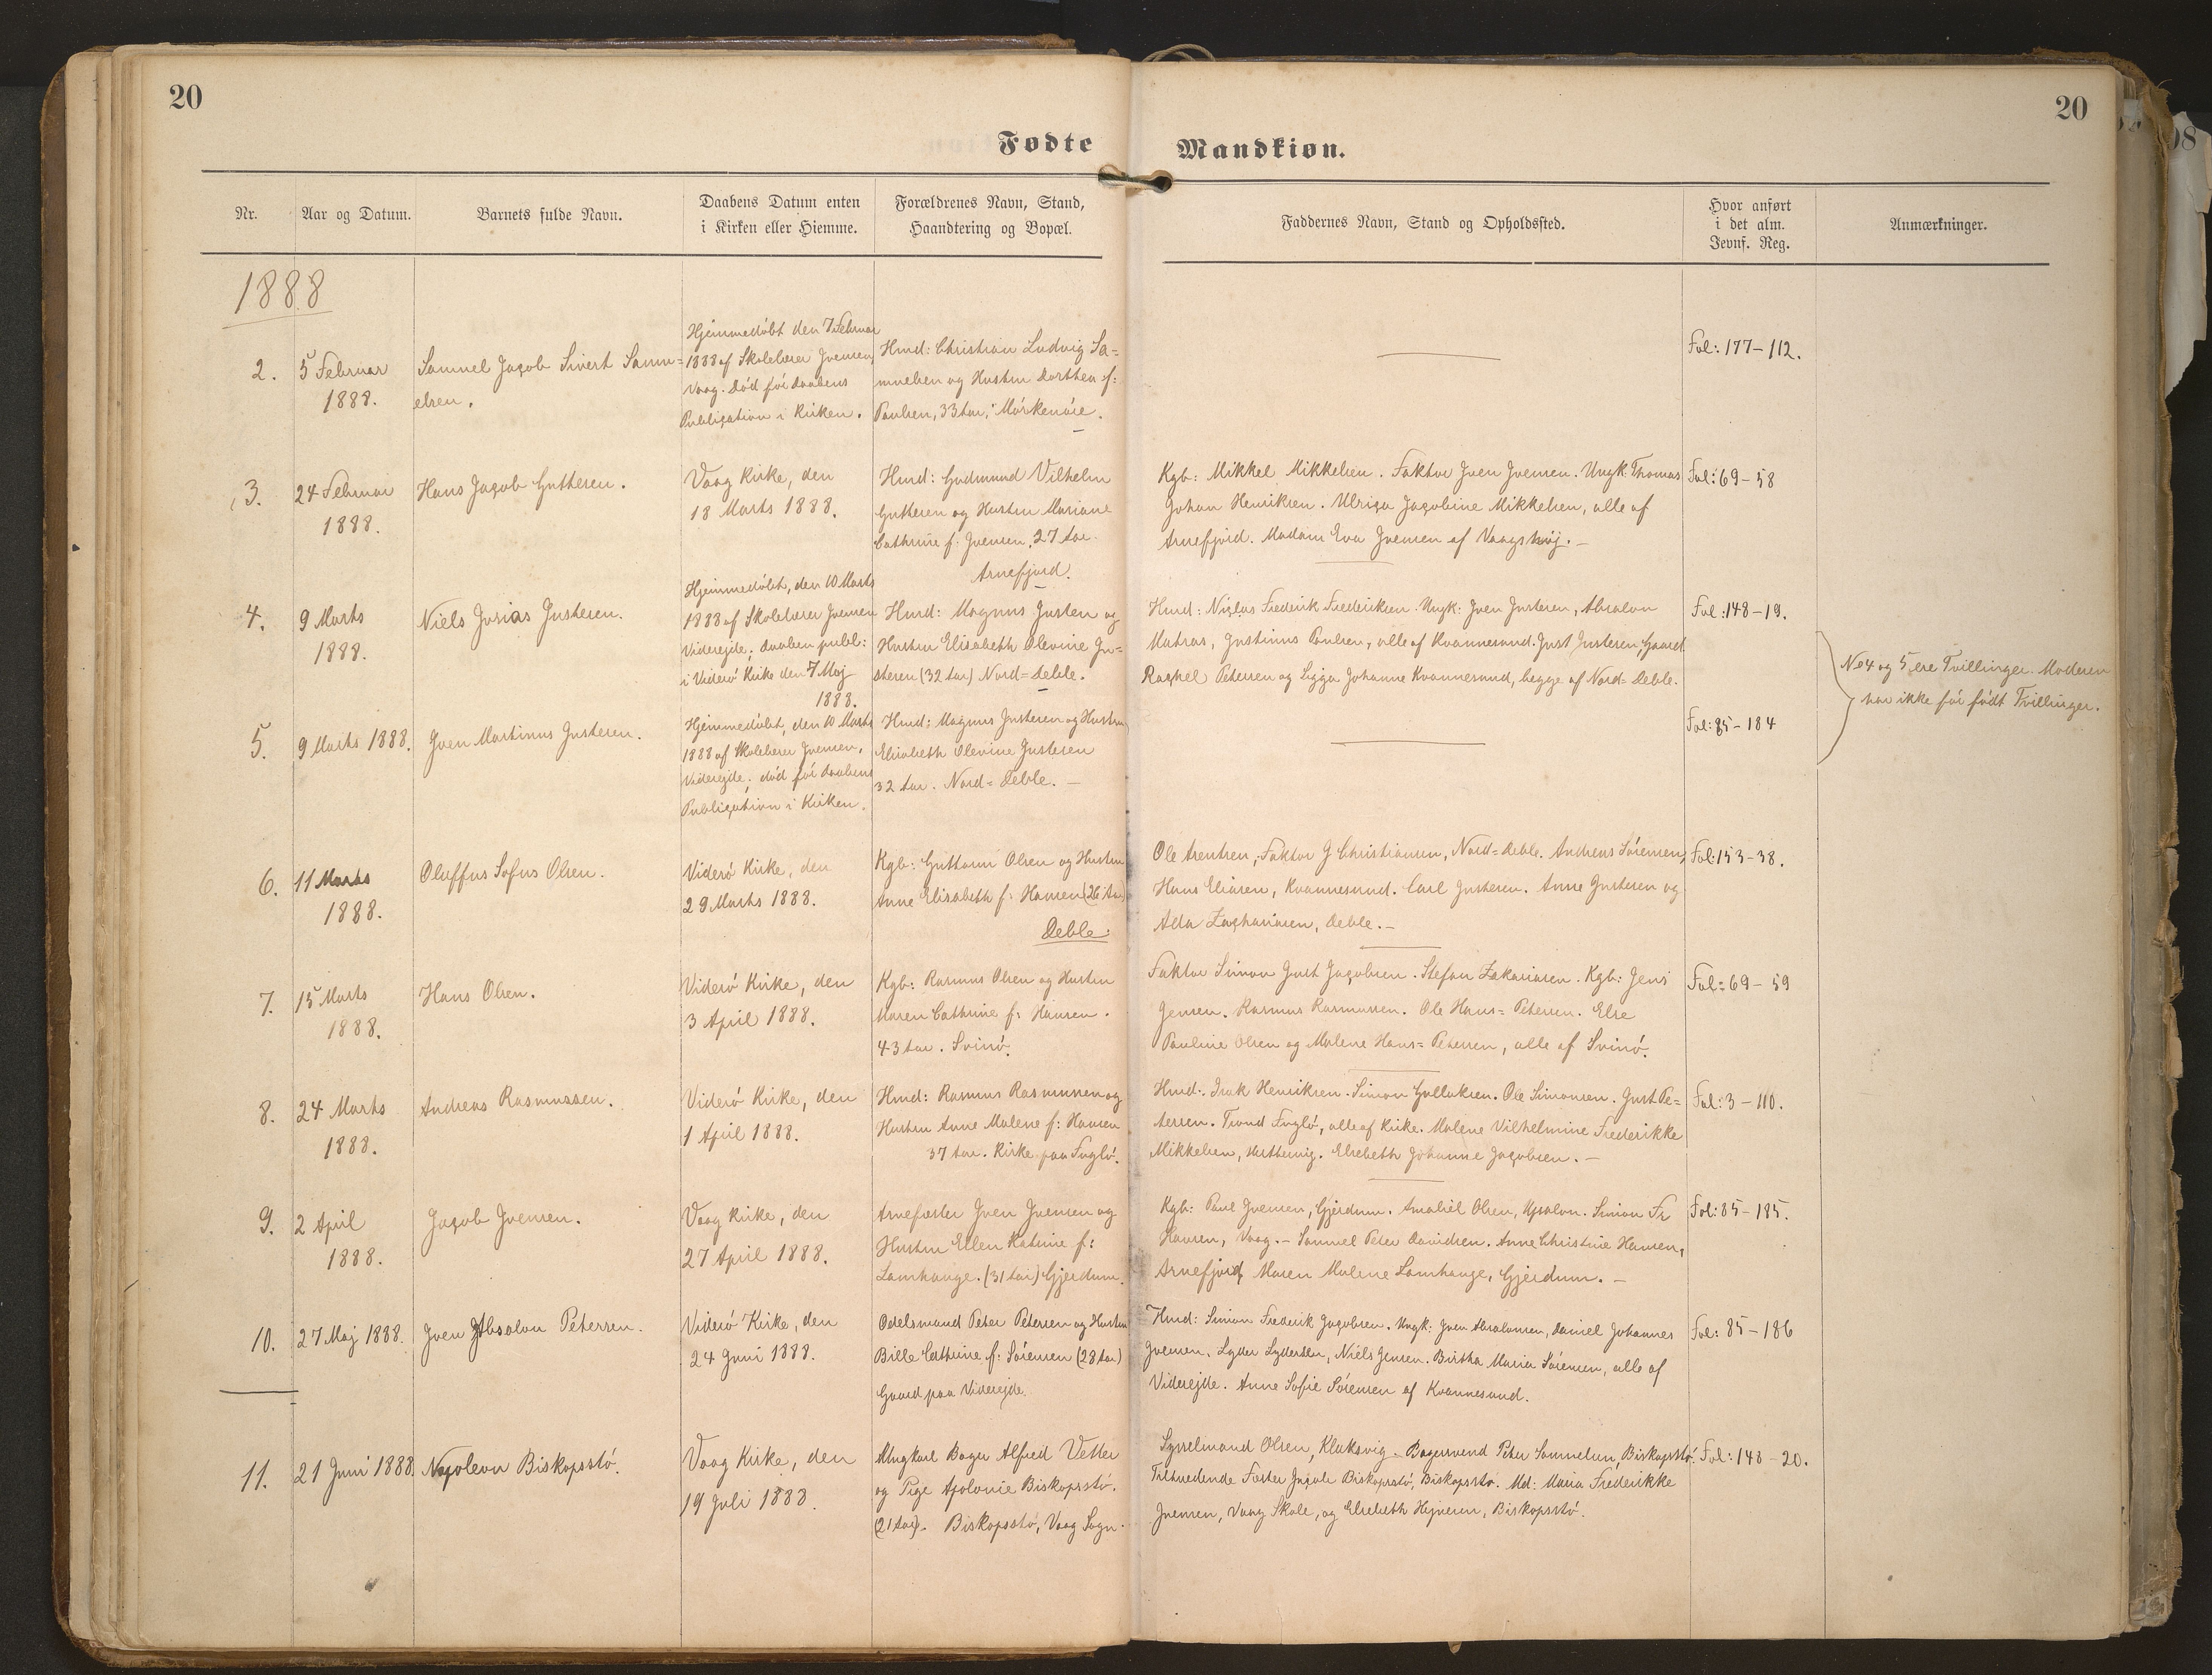 20
20
Fødte
Mandkiøn.
Nr.
Aar og Datum.
Barnets fulde Navn.
Daabens Datum enten
i Kirken eller Hiemme.
Forældrenes Navn, Stand,
Haandtering og Bopæl.
Faddernes Navn, Stand og Opholdssted.
Hvor anført
i det alm.
Jevnf. Reg.
Anmærkninger.
1888
2.
5 Februar
1888.
Samuel Jacob Sivert Samu=
elsen.
Hjemmedøbt den 7 Februar
1888 af Skolelærer Joensen,
Vaag. Død før Daabens
Publication i Kirken.
Hmd: Christian Ludvig Sa=
muelsen og Hustru Dorthea f:
Poulsen, 33 Aar, Mørkenøre.
Fol: 177-112.
3.
24 Februar
1888.
Hans Jacob Guttesen.
Vaag Kirke, den
18 Marts 1888.
Hmd: Gudmund Vilhelm
Guttesen og Hustru Mariane
Cathrine f: Joensen, 27 Aar.
Arnefjord.
Kgb: Mikkel Mikkelsen. Faktor Joen Joensen. Ungk: Thomas
Johan Henriksen. Ulrica Jacobine Mikkelsen, alle af
Arnefjord. Madam Eva Joensen af Vaags
Fol: 69-58
4.
9 Marts
1888.
Niels Josias Justesen.
Hjemmedøbt, den 10 Marts
1888 af Skolelærer Joensen
Viderejde; Daaben publ:
i Viderø Kirke den 7 Maj
1888.
Hmd: Magnus Justen og
Hustru Elisabeth Olevine Ju=
stesen (32 Aar) Nord=Deble.
Hmd: Niclas Frederik Frederiksen. Ungk: Joen Justesen, Absalon
Matras, Justinus Poulsen, alle af Kvannesund. Just Justesen, Gaard
Rachel Petersen og Sigga Johanne Kvannesund, begge af Nord=Deble.
Fol: 148-19.
No 4 og 5 ere Tvillinger. Moderen
har ikke før født Tvillinger.
5.
9 Marts 1888.
Joen Martinus Justesen.
Hjemmedøbt, den 10 Marts
1888 af Skolelærer Joensen,
Viderejde; død før Daabens
Publication i Kirken.
Hmd: Magnus Justesen og Hustru
Elisabeth Olevine Justesen
32 Aar. Nord=Deble.
Fol: 85-184
6.
11 Marts
1888.
Oluffus Sofus Olsen.
Viderø Kirke, den
29 Marts 1888.
Kgb: Guttorm Olsen og Hustru
Anne Elisabeth f: Hansen (26 Aar)
Deble.
Ole Arentsen, Faktor J Christiansen, Nord=Deble. Andreas Sørensen,
Hans Eliasen, Kvannesund. Carl Justesen. Anne Justesen og
Alda Zachariasen, Deble.
Fol: 153-38.
7.
15 Marts
1888.
Hans Olsen.
Viderø Kirke, den
3 April 1888.
Kgb: Rasmus Olsen og Hustru
Maren Cathrine f: Hansen.
43 Aar. Svinø.
Faktor Simon Just Jacobsen. Stefan Zakariasen. Kgb: Jens
Jensen. Rasmus Rasmussen. Ole Hans=Petersen. Else
Pauline Olsen og Malene Hans=Petersen, alle af Svinø.
Fol: 69-59
8.
24 Marts
1888.
Andreas Rasmussen.
Viderø Kirke, den
1 April 1888.
Hmd: Rasmus Rasmussen og
Hustru Anne Malene f: Hansen
37 Aar. Kirke paa Fuglø.
Hmd: Isak Henriksen. Simon Gullaksen. Ole Simonsen. Just Pe=
tersen. Trond Fuglø, alle af Kirke. Malene Vilhelmine Frederikke
Mikkelsen, . Elsebeth Johanne Jacobsen.
Fol: 3-110.
9.
2 April
1888.
Jacob Joensen.
Vaag Kirke, den
27 April 1888.
Arnefæster Joen Joensen og
Hustru Ellen Katrine f:
Lamhauge. (31 Aar) Gjerdum.
Kgb: Poul Joensen, Gjerdum. Amaliel Olsen, Upsalon. Simon Fr
Hansen, Vaag. Samuel Peter Davidsen. Anne Christine Hansen,
Arnefjord, Maren Malene Lamhauge, Gjerdum.
Fol: 85-185.
10.
27 Maj 1888.
Joen Absalon Petersen.
Viderø Kirke, den
24 Juni 1888.
Odelsmand Peter Petersen og Hustru
Bille Cathrine f: Sørensen (28 Aar)
Gaard paa Viderejde.
Hmd: Simon Frederik Jacobsen. Ungk: Joen Absalonsen, Daniel Johannes
Joensen. Lyder Lydersen, Niels Jensen. Birtha Maria Sørensen, alle af
Viderejde. Anne Sofie Sørensen af Kvannesund.
Fol: 85-186
11.
21 Juni 1888.
Napoleon Biskopsstø.
Vaag Kirke, den
19 Juli 1888.
Ungkarl Bager Alfred Vetter
og Pige Apolonie Biskopsstø.
(21 Aar). Biskopsstø, Vaag Sogn.
Sysselmand Olsen, Klaksvig. Bagersvend Peter Samuelsen, Biskopsstø.
Tiltrædende Fæster Jacob Biskopsstø, Biskopsstø. Md: Maria Frederikke
Joensen, Vaag Skole, og Elsebeth Hejnesen, Biskopsstø.
Fol: 148-20.